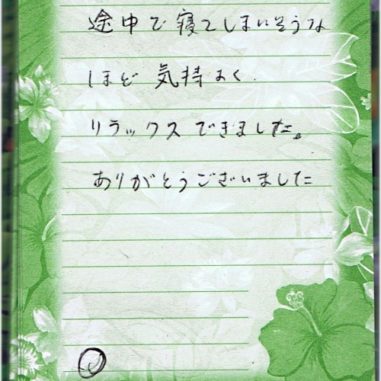 途中で寝てしまいそうな
ほど気持よく
リラックスできました。
ありがとうございました